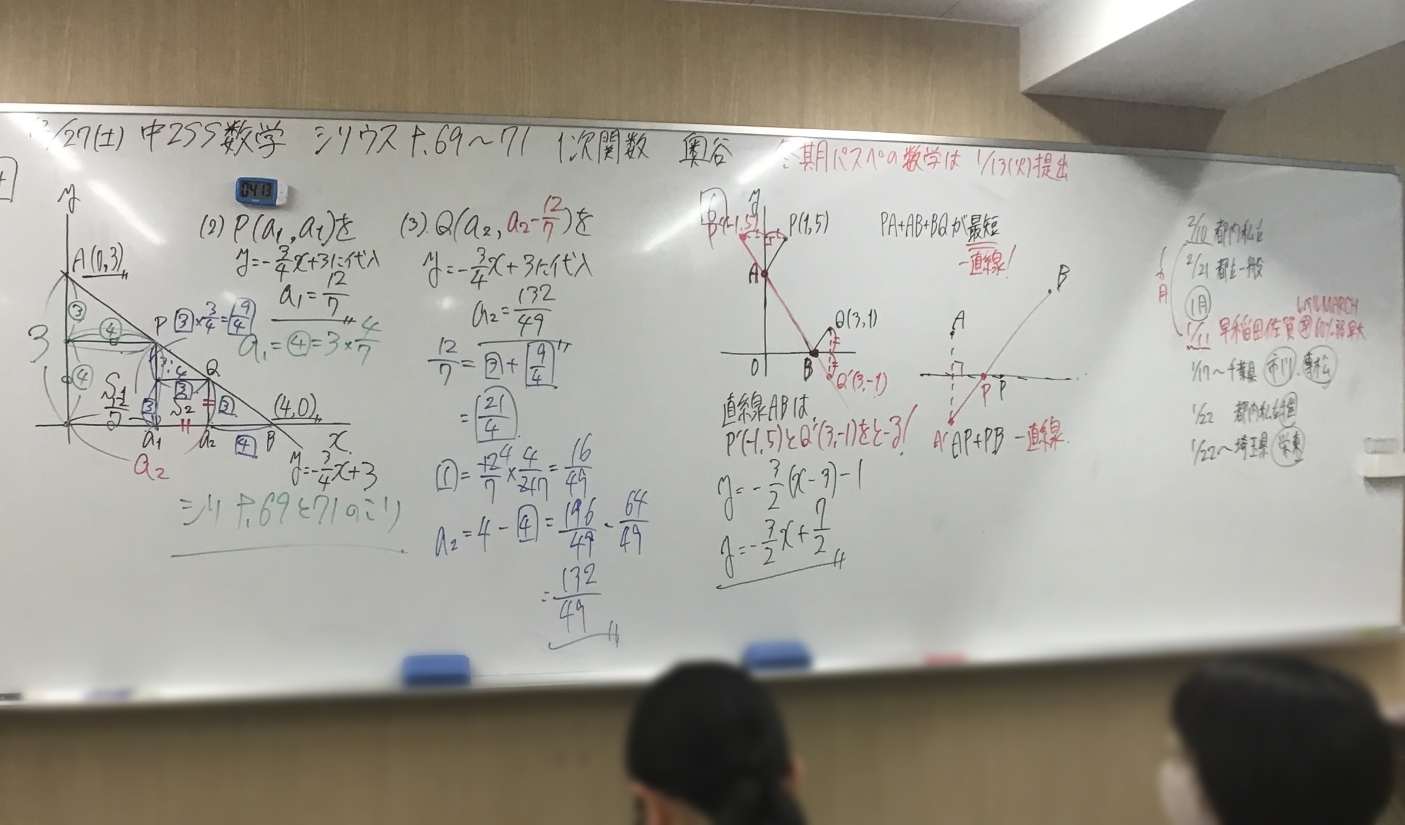 /27(土) 中2SS数学 シリウスP.69〜71 1次関数 奥谷
期月パスペの数学は 1/13(火)提出
0413
y
A(0,3)
3
③
④
④
P
③×3/4=9/4
Q
S1
S2
12/7
a1
a2
B
(4,0)
x
④
a2
y=-3/4x+3
シリP.69と71のこり
(2) P(a1,a1)を
y=-3/4x+3に代入
a1=12/7
a1=④=3×4/7
(3) Q(a2,a2-12/7)を
y=-3/4x+3に代入
a2=132/49
12/7=③+9/4
=21/4
①=12/7×4/21=16/49
a2=4-④=196/49-64/49
=132/49
6
y
P'(-1,5)
P(1,5)
A
Q(3,1)
0
B
Q'(3,-1)
直線ABは、
P'(-1,5)とQ'(3,-1)をとーる!
y=-3/2(x-3)-1
y=-3/2x+7/2
PA+AB+BQが最短
一直線!
A
B
P
P
A'
AP+PB 一直線
2/10 都内私立
2/21 都立一般
1月
レベルMARCH
1/11 早稲田佐賀
1/17〜千葉県 市川、専松
1/22 都内私立
1/22〜埼玉県 栄東